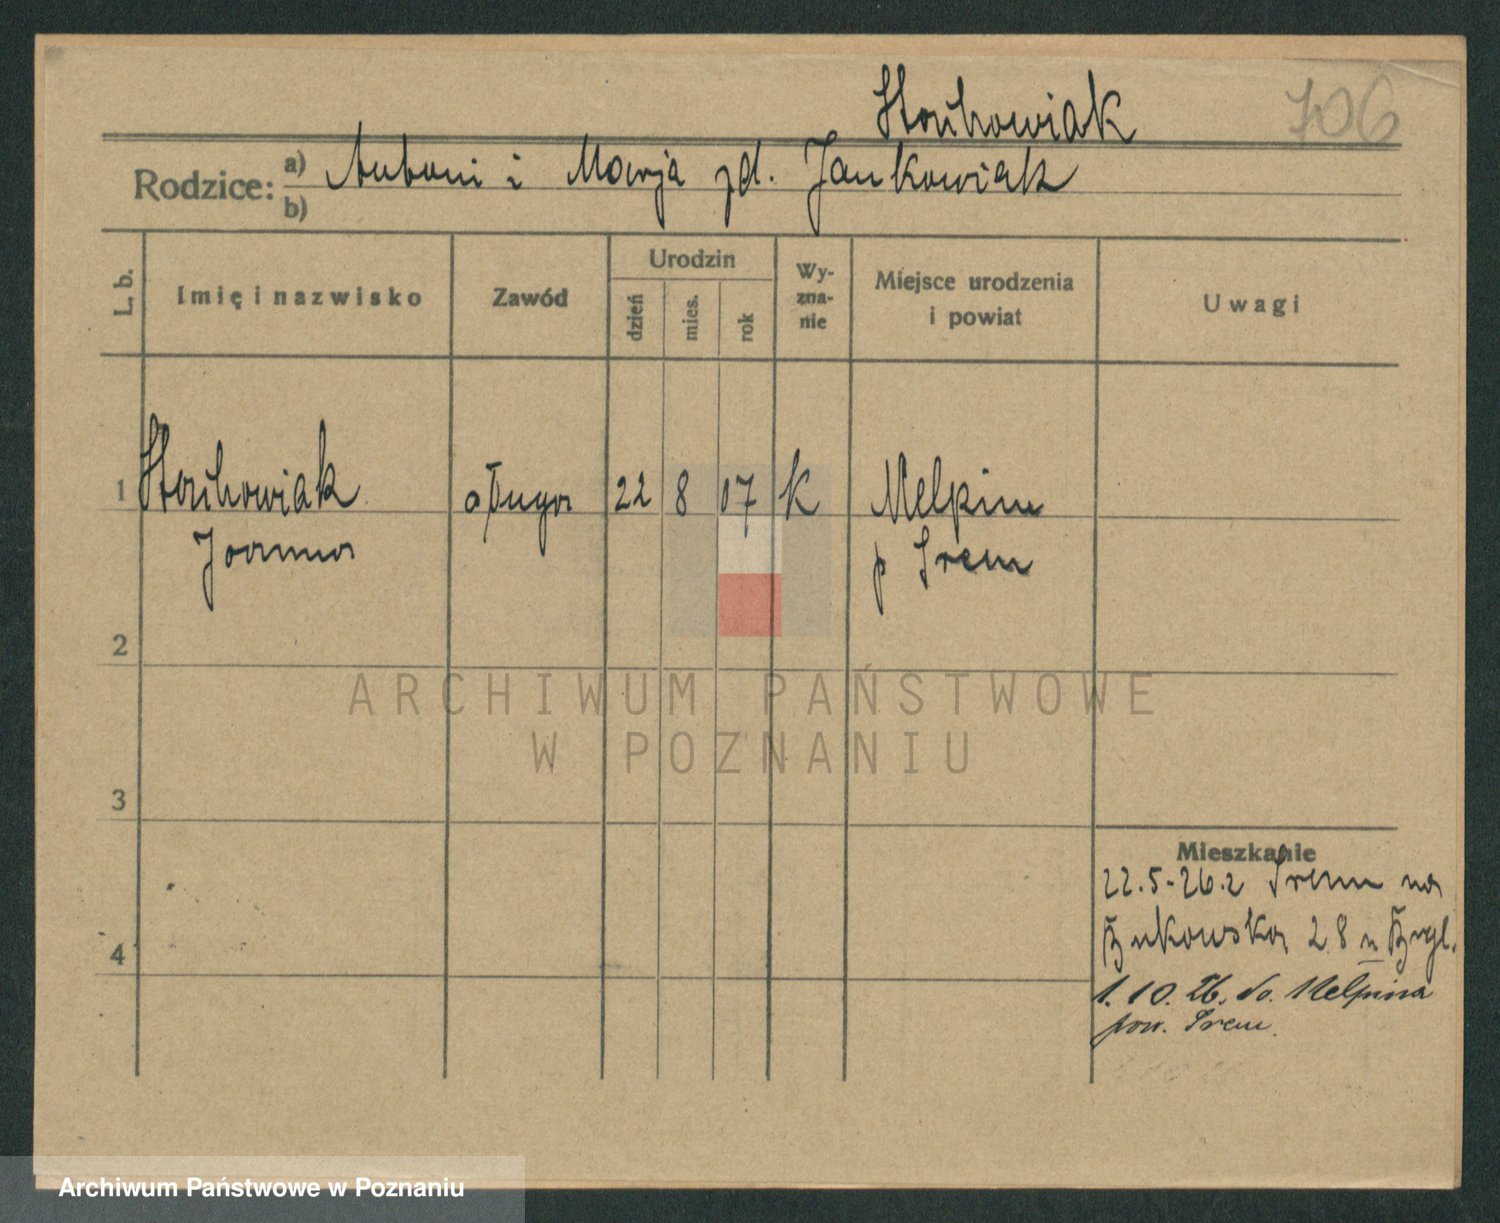 Stachowiak
706
Rodzice: a) Antoni i Marja zd. Jankowiak
b)
L. b.
Imię i nazwisko
Zawód
Urodzin
dzień
mies.
rok
Wy-
zna-
nie
Miejsce urodzenia
i powiat
Uwagi
1 Stachowiak 22 8 07 K Melpin
Joanna p Śrem
2
3
4
Mieszkanie
22.5-26.2 Śrem na
Bukowska 28 u
1.10.26. do Melpina
pow. Śrem.
ARCHIWUM PAŃSTWOWE
W POZNANIU
Archiwum Państwowe w Poznaniu